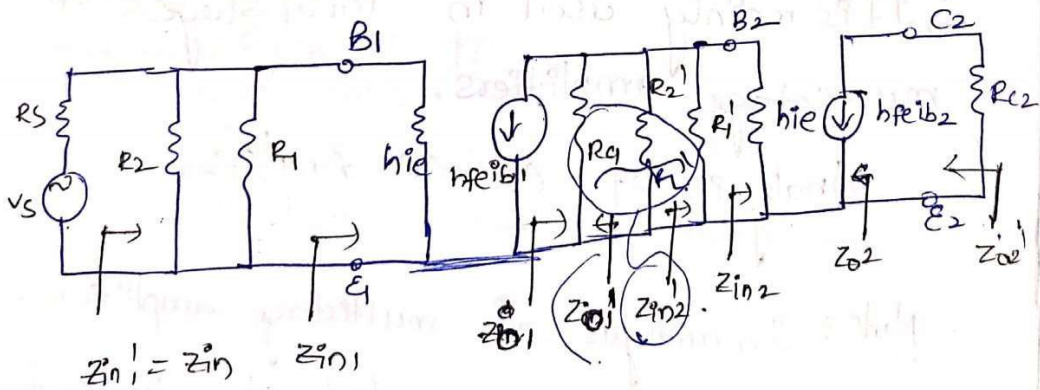 B1
B2
C2
RS
R2
R1
hie
hfeib1
RC1
R2'
R1'
hie
hfeib2
RC2
VS
E1
E2
Zin1' = Zin
Zin1
Zo1'
Zin2'
Zin2
Zo2
Zo2'